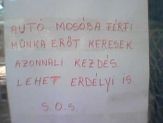 AUTÓ MOSÓBA FÉRFI
MUNKA ERŐT KERESEK
AZONNALI KEZDÉS
LEHET ERDÉLYI IS
S.O.S.